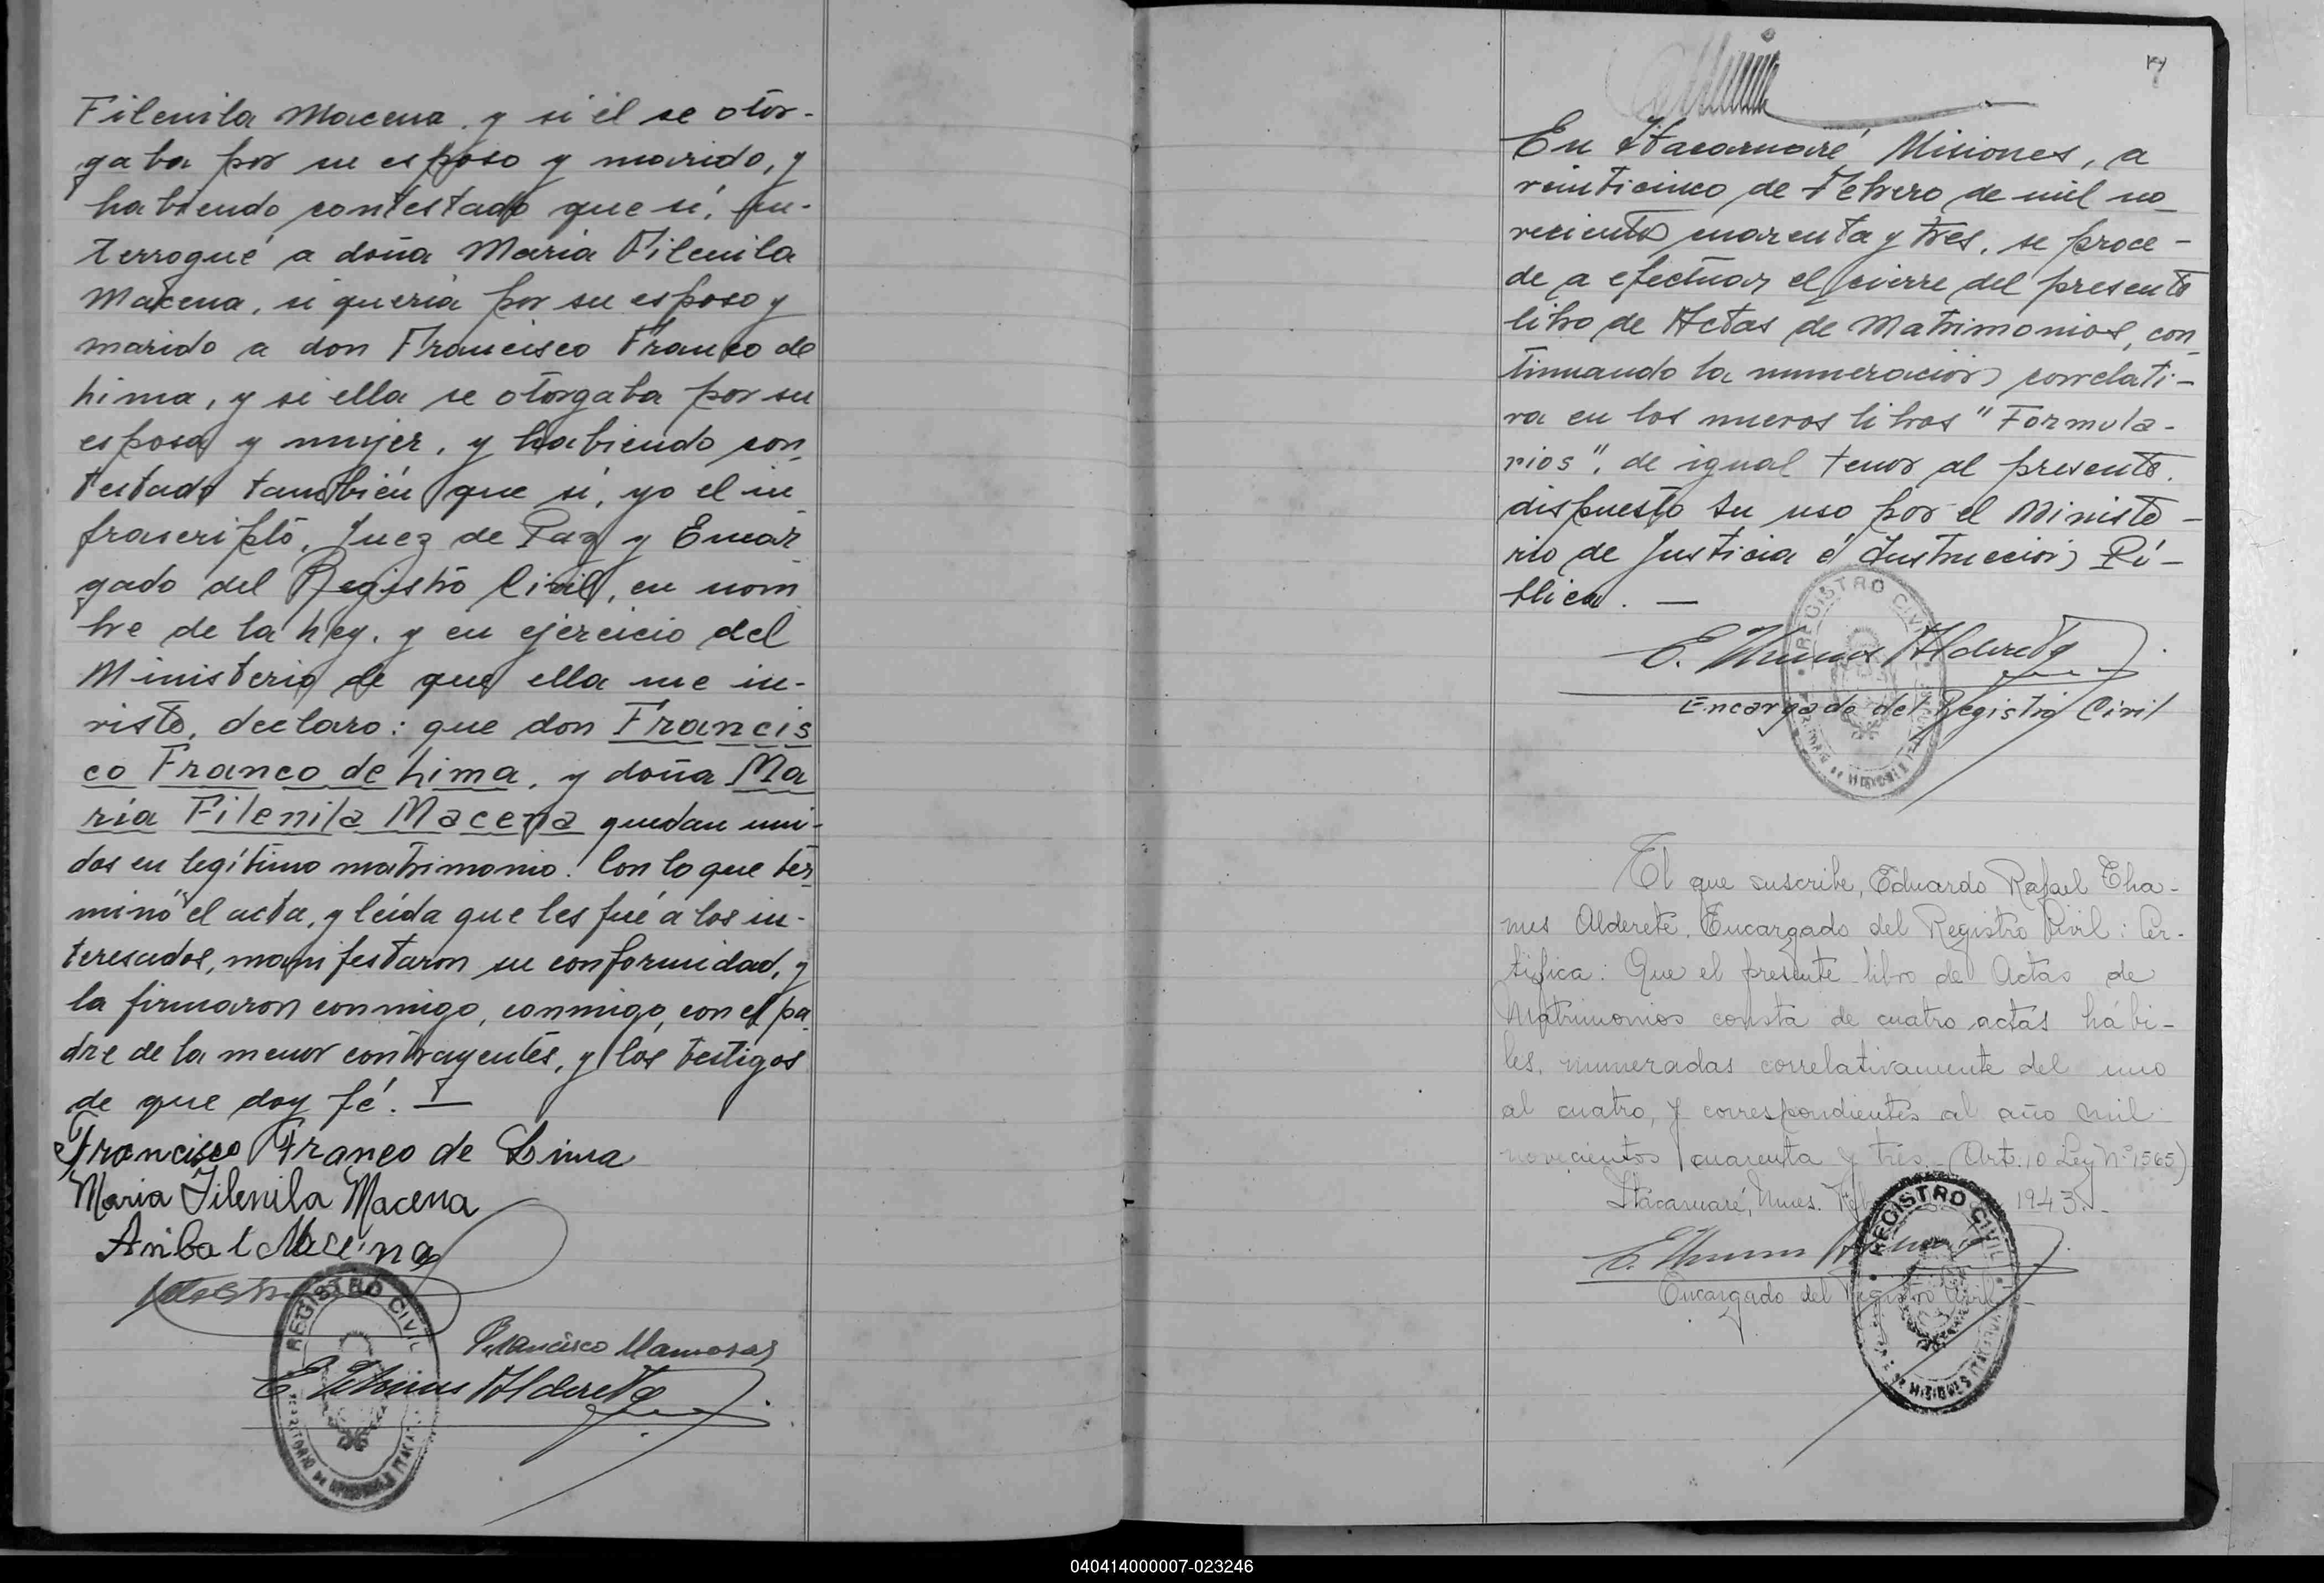 Filenila Macena, y si él se otor-
gaba por su esposo y marido, y
habiendo contestado que sí, in-
terrogué a doña Maria Filenila
Macena, si quería por su esposo y
marido a don Francisco Franco de
Lima, y si ella se otorgaba por su
esposa y mujer, y habiendo con
testado también que sí, yo el in
frascripto, Juez de Paz y Encar
gado del Registro Civil, en nom
bre de la Ley, y en ejercicio del
Ministerio de que ella me in-
viste, declaro: que don Francis
co Franco de Lima, y doña Ma
ria Filenila Macena quedan uni-
dos en legítimo matrimonio. Con lo que ter
minó el acta, y leída que les fué a los in-
teresados, manifestaron su conformidad, y
la firmaron conmigo, conmigo, con el pa
dre de la menor contrayentes, y los testigos
de que doy fé. —
Francisco Franco de Lima
Maria Filenila Macena
Anibal Macena
REGISTRO CIVIL
Francisco Mamoras
E. Thames Alderete
TERRITORIO DE MISIONES
7
En Itacaruaré, Misiones, a
veinticinco de Febrero de mil no
vecientos cuarenta y tres, se proce-
de a efectuar el cierre del presente
libro de Actas de Matrimonios, con
tinuando la numeración correlati-
va en los nuevos libros "Formula-
rios", de igual tenor al presente.
dispuesto su uso por el Ministe-
rio de Justicia é Instrucción Pú-
blica. —
REGISTRO CIVIL
E. Thames Alderete
Encargado del Registro Civil
El que suscribe, Eduardo Rafael Tha-
mes Alderete, Encargado del Registro Civil: Cer-
tifica: Que el presente libro de Actas de
Matrimonios consta de cuatro actas hábi-
les, numeradas correlativamente del uno
al cuatro, y correspondientes al año mil
novecientos cuarenta y tres (Art. 10 Ley Nº 1565)
Itacaruaré, Mnes. 1943.-
REGISTRO CIVIL
E. Thames
Encargado del Registro Civil
040414000007-023246